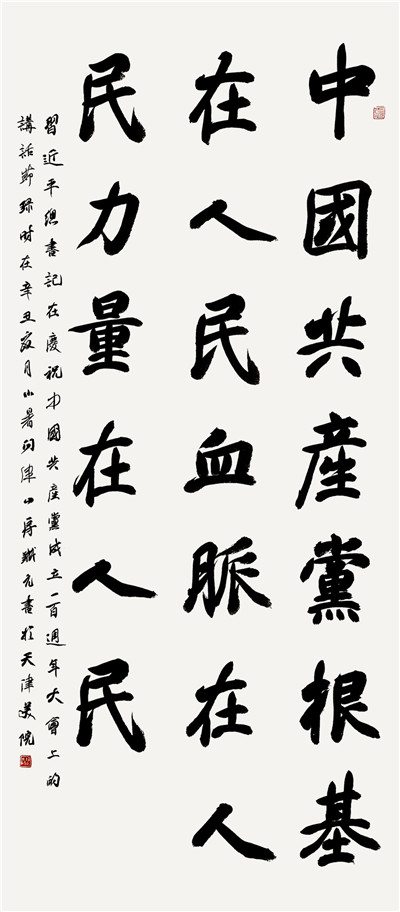 中國共產黨根基
在人民血脈在人
民力量在人民
習近平總書記在慶祝中國共產黨成立一百週年大會上的
講話節錄時在辛丑夏月小暑問津口唐雲元書於天津美院